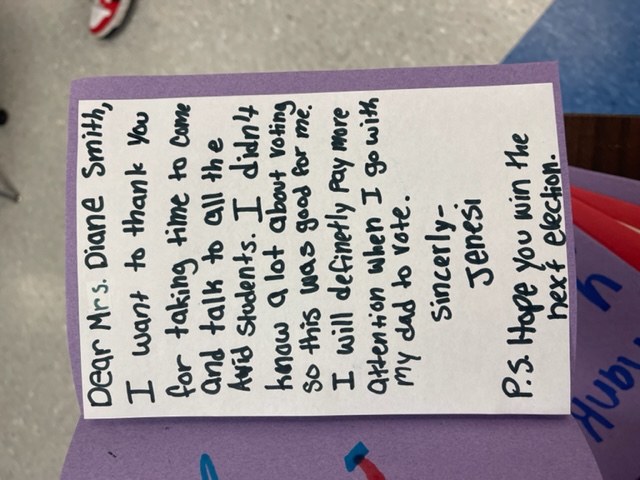 Dear Mrs. Diane Smith,
I want to thank you
for taking time to come
and talk to all the
Avid students. I didn't
know a lot about voting
so this was good for me.
I will definetly pay more
attention when I go with
my dad to vote.
Sincerly-
Jenesi
P.S. Hope you win the
next election.